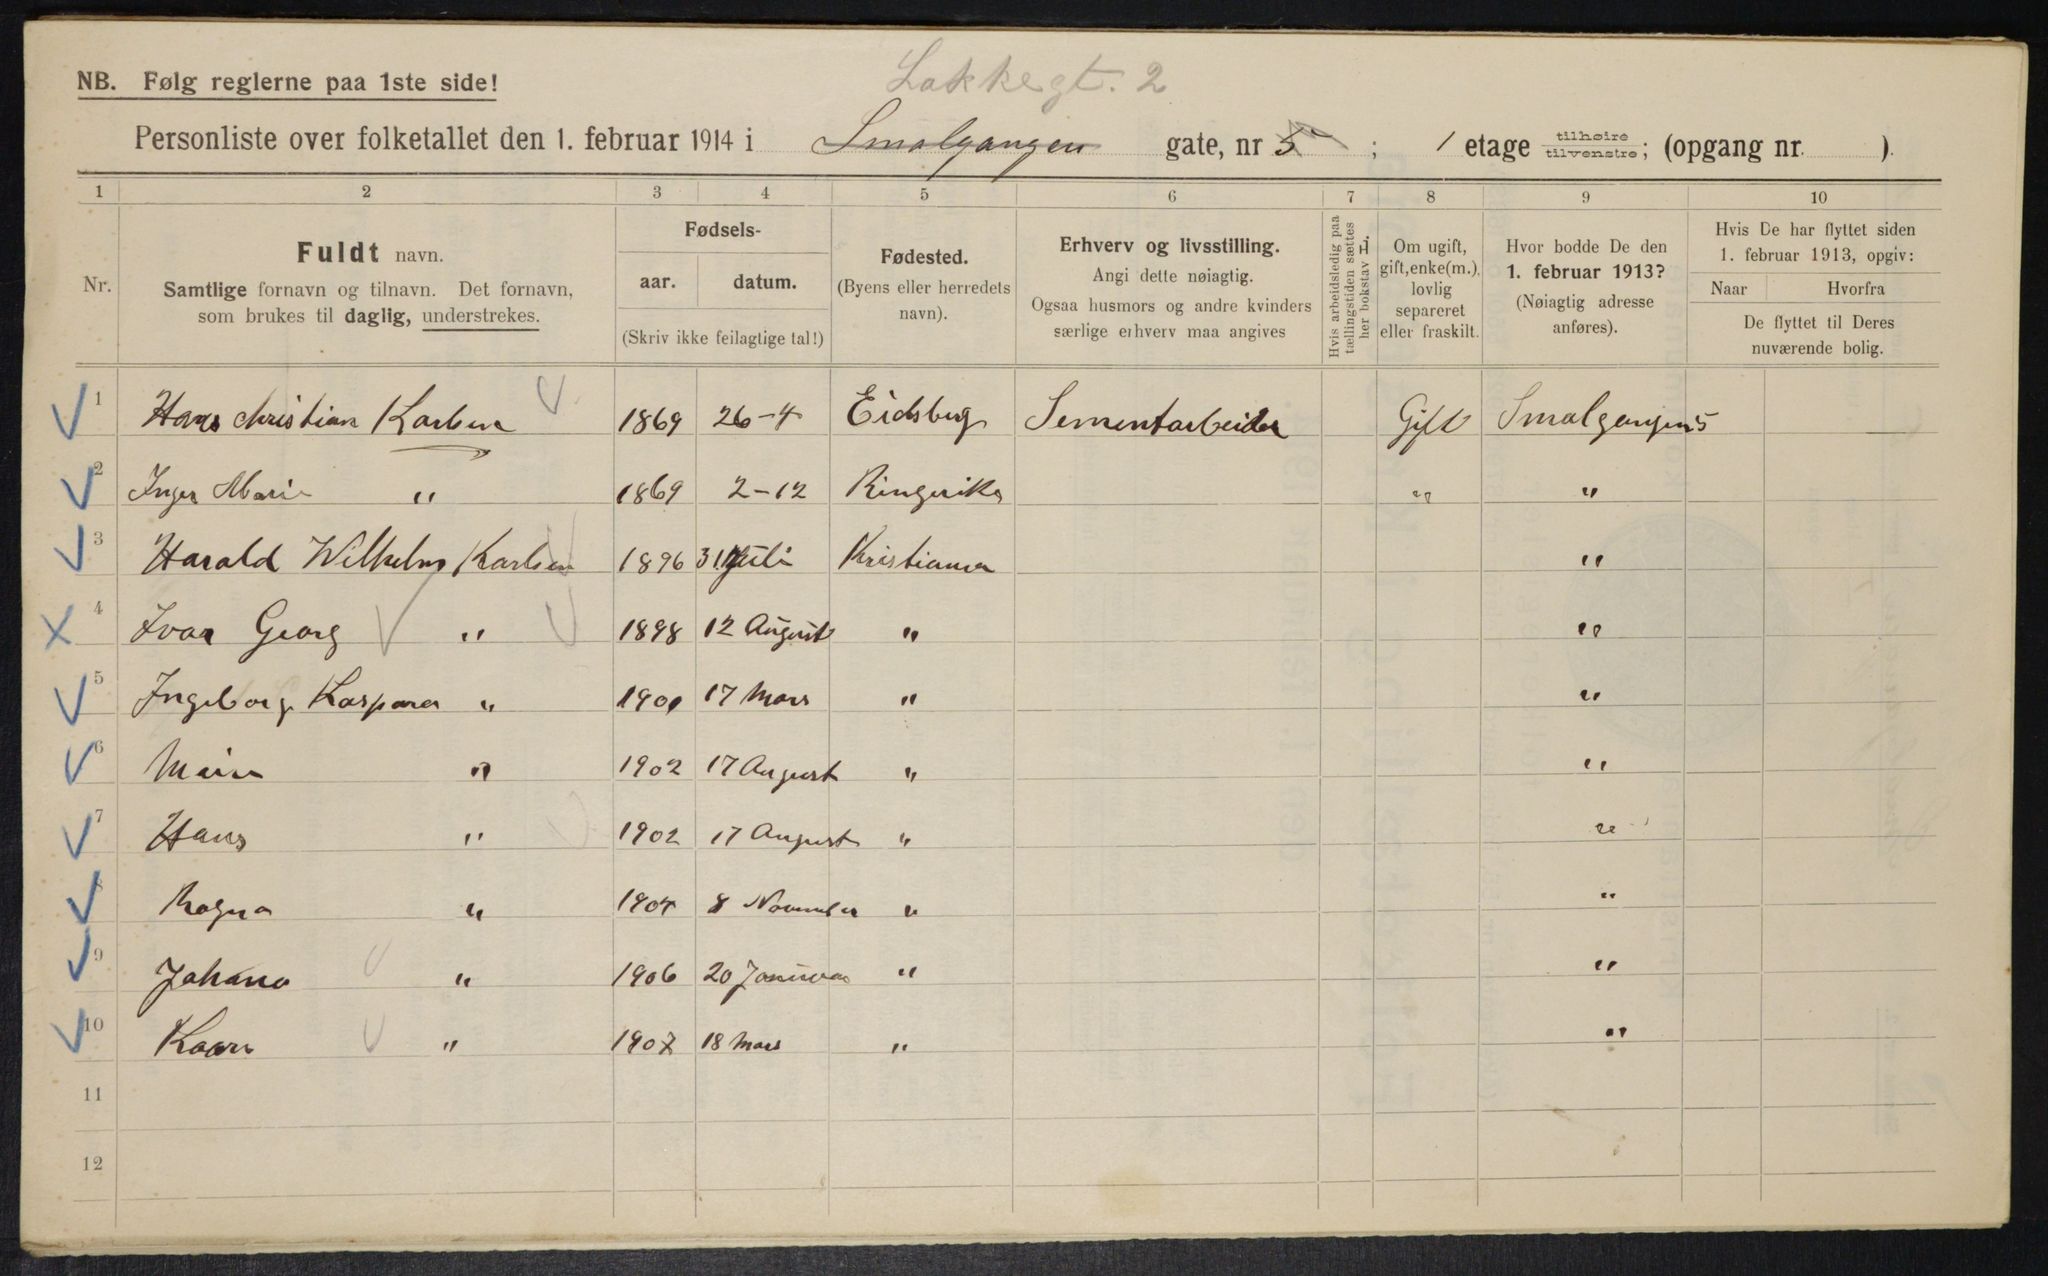 Lakkegt. 2
NB. Følg reglerne paa 1ste side!
Personliste over folketallet den 1. februar 1914 i Smalgangen gate, nr 5 ; 1 etage tilhøire tilvenstre; (opgang nr. ).
1 2 3 4 5 6 7 8 9 10
Nr.
Fuldt navn.
Samtlige fornavn og tilnavn. Det fornavn,
som brukes til daglig, understrekes.
Fødsels-
aar. datum.
(Skriv ikke feilagtige tal!)
Fødested.
(Byens eller herredets
navn).
Erhverv og livsstilling.
Angi dette nøiagtig.
Ogsaa husmors og andre kvinders
særlige erhverv maa angives
Hvis arbeidsledig paa
tællingstiden sættes
her bokstav L.
Om ugift,
gift, enke(m.),
lovlig
separeret
eller fraskilt.
Hvor bodde De den
1. februar 1913?
(Nøiagtig adresse
anføres).
Hvis De har flyttet siden
1. februar 1913, opgiv:
Naar Hvorfra
De flyttet til Deres
nuværende bolig.
1 Hans Christian Karlsen 1869 26-4 Eidsberg Sementarbeider Gift Smalgangen 5
2 Inger Marie " 1869 2-12 Ringerike " "
3 Harald Wilhelm Karlsen 1896 31 Juli Kristiania "
4 Ivar Georg " 1898 12 August " "
5 Ingeborg Kaspara " 1901 17 Mars " "
6 " 1902 17 August " "
7 Hans " 1902 17 August " "
8 Ragna " 1904 8 November " "
9 Johana " 1906 20 Januar " "
10 Kaare " 1907 18 Mars " "
11
12